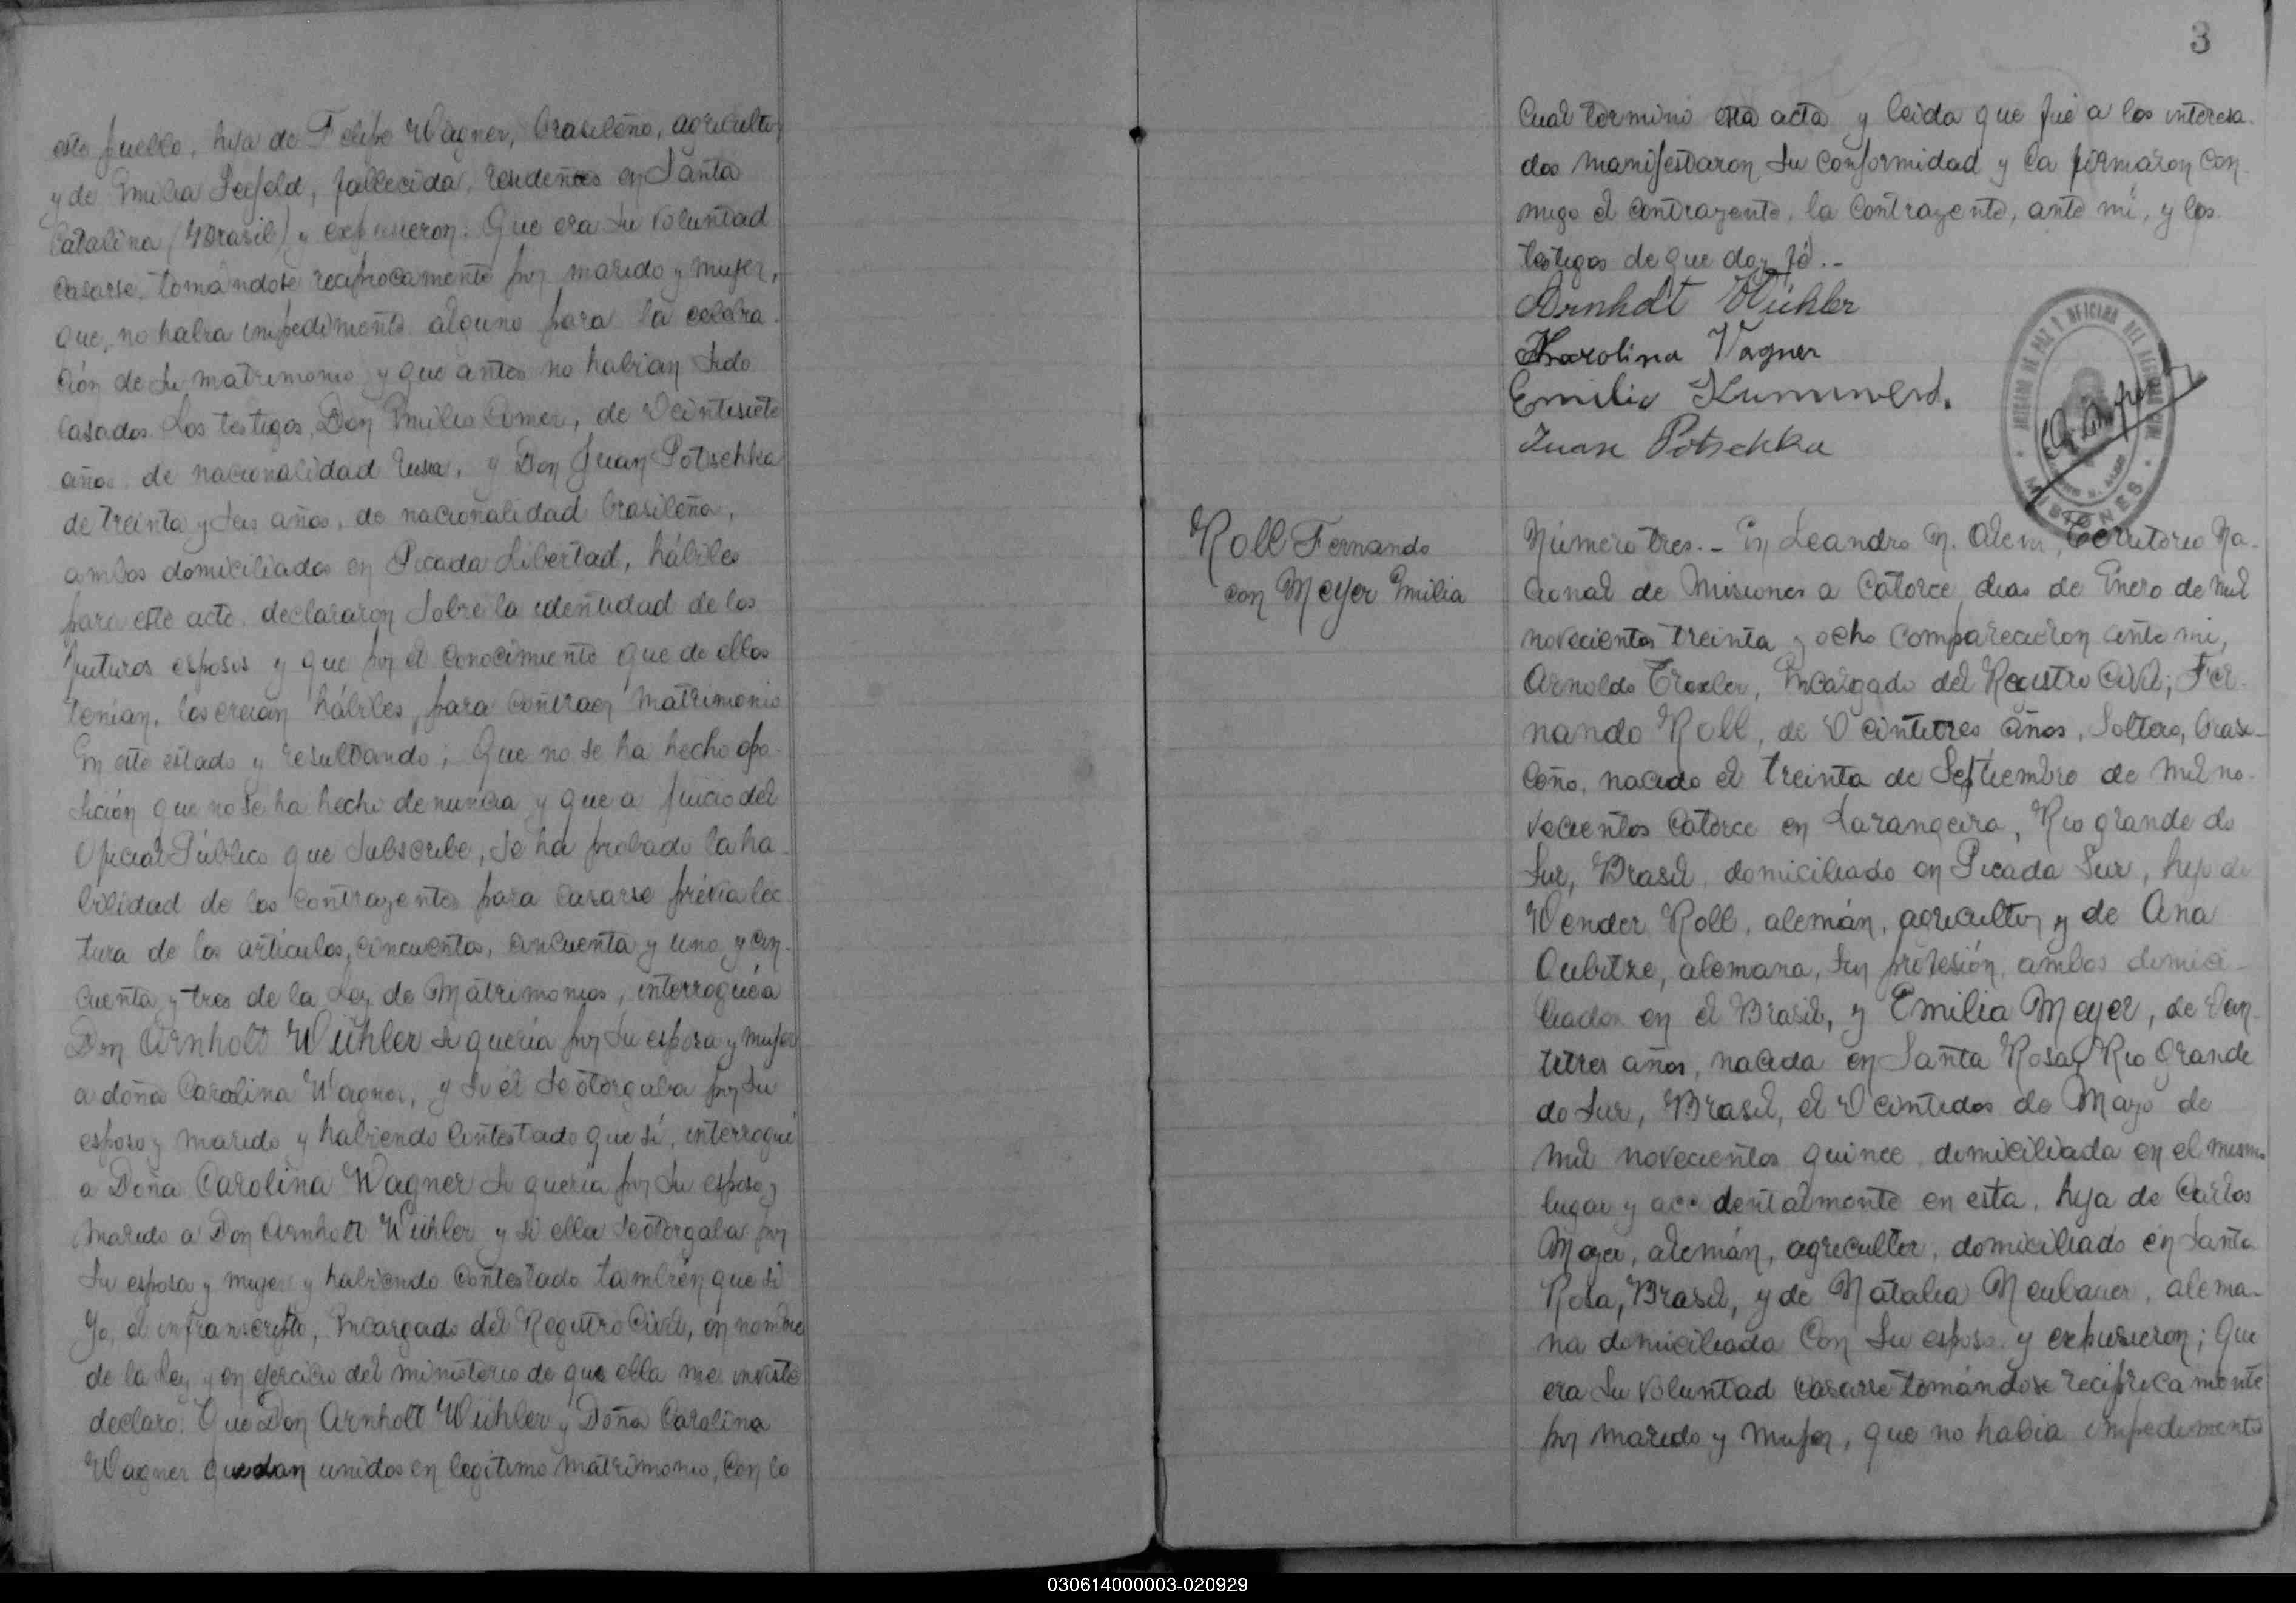 este pueblo, hija de Felipe Wagner, brasileño, agricultor,
y de Emilia Seefeld, fallecida, residentes en Santa
Catalina (Brasil) y expusieron: Que era su voluntad
casarse, tomándose recíprocamente por marido y mujer,
que, no habia impedimento alguno para la celebra-
ción de su matrimonio y que antes no habian sido
casados. Los testigos, Don Emilio de veintisiete
años, de nacionalidad rusa, y Don Juan Potschka
de treinta y seis años, de nacionalidad brasileña,
ambos domiciliados en Picada Libertad, hábiles
para este acto, declararon sobre la identidad de los
futuros esposos y que por el conocimiento que de ellos
tenian, los creian hábiles, para contraer matrimonio
En este estado y resultando; Que no se ha hecho opo-
sición que no se ha hecho denuncia y que a juicio del
Oficial Público que subscribe, se ha probado la ha-
bilidad de los contrayentes para casarse prévia lec-
tura de los articulos, cincuenta, cincuenta y uno y cin-
cuenta y tres de la Ley de Matrimonios, interrogué a
Don Arnholt Wühler si queria por su esposa y mujer
a doña Carolina Wagner, y si él se otorgaba por su
esposo y marido y habiendo contestado que sí, interrogué
a Doña Carolina Wagner si queria por su esposo y
marido a Don Arnholt Wühler y si ella se otorgaba por
su esposa y mujer y habiendo contestado también que si
Yo, el infrascripto, Encargado del Registro Civil, en nombre
de la Ley y en ejercicio del ministerio de que ella me inviste
declaro: Que Don Arnholt Wühler y Doña Carolina
Wagner quedan unidos en legitimo matrimonio, con lo
3
cual terminó esta acta y leida que fué a los interesa-
dos manifestaron su conformidad y la firmaron con-
migo el contrayente, la contrayente, ante mí, y los
testigos de que doy fé.-
Arnholt Wühler
Karolina Vagner
Emilio
Juan Potschka
JUZGADO DE PAZ Y OFICINA DEL REGISTRO CIVIL
MISIONES
Roll Fernando
con Meyer Emilia
Número tres.- En Leandro N. Alem, Territorio Na-
cional de Misiones a catorce dias de Enero de mil
novecientos treinta y ocho comparecieron ante mi,
Arnoldo Troxler, Encargado del Registro Civil; Fer-
nando Roll, de veintitres años, soltero, brasi-
leño, nacido el treinta de Septiembre de mil no-
vecientos catorce en Larangeira, Rio grande do
Sur, Brasil, domiciliado en Picada Sur, hijo de
Wender Roll, alemán, agricultor y de Ana
Oubitze, alemana, sin profesión, ambos domici-
liados en el Brasil, y Emilia Meyer, de vein-
titres años, nacida en Santa Rosa, Rio Grande
do Sur, Brasil, el veintidos de Mayo de
mil novecientos quince, domiciliada en el mismo
lugar y accidentalmente en esta, hija de Carlos
Meyer, alemán, agricultor, domiciliado en Santa
Rosa, Brasil, y de Natalia Neubauer, alema-
na domiciliada con su esposo y expusieron; Que
era su voluntad casarse tomándose recíprocamente
por marido y mujer, que no habia impedimento
030614000003-020929